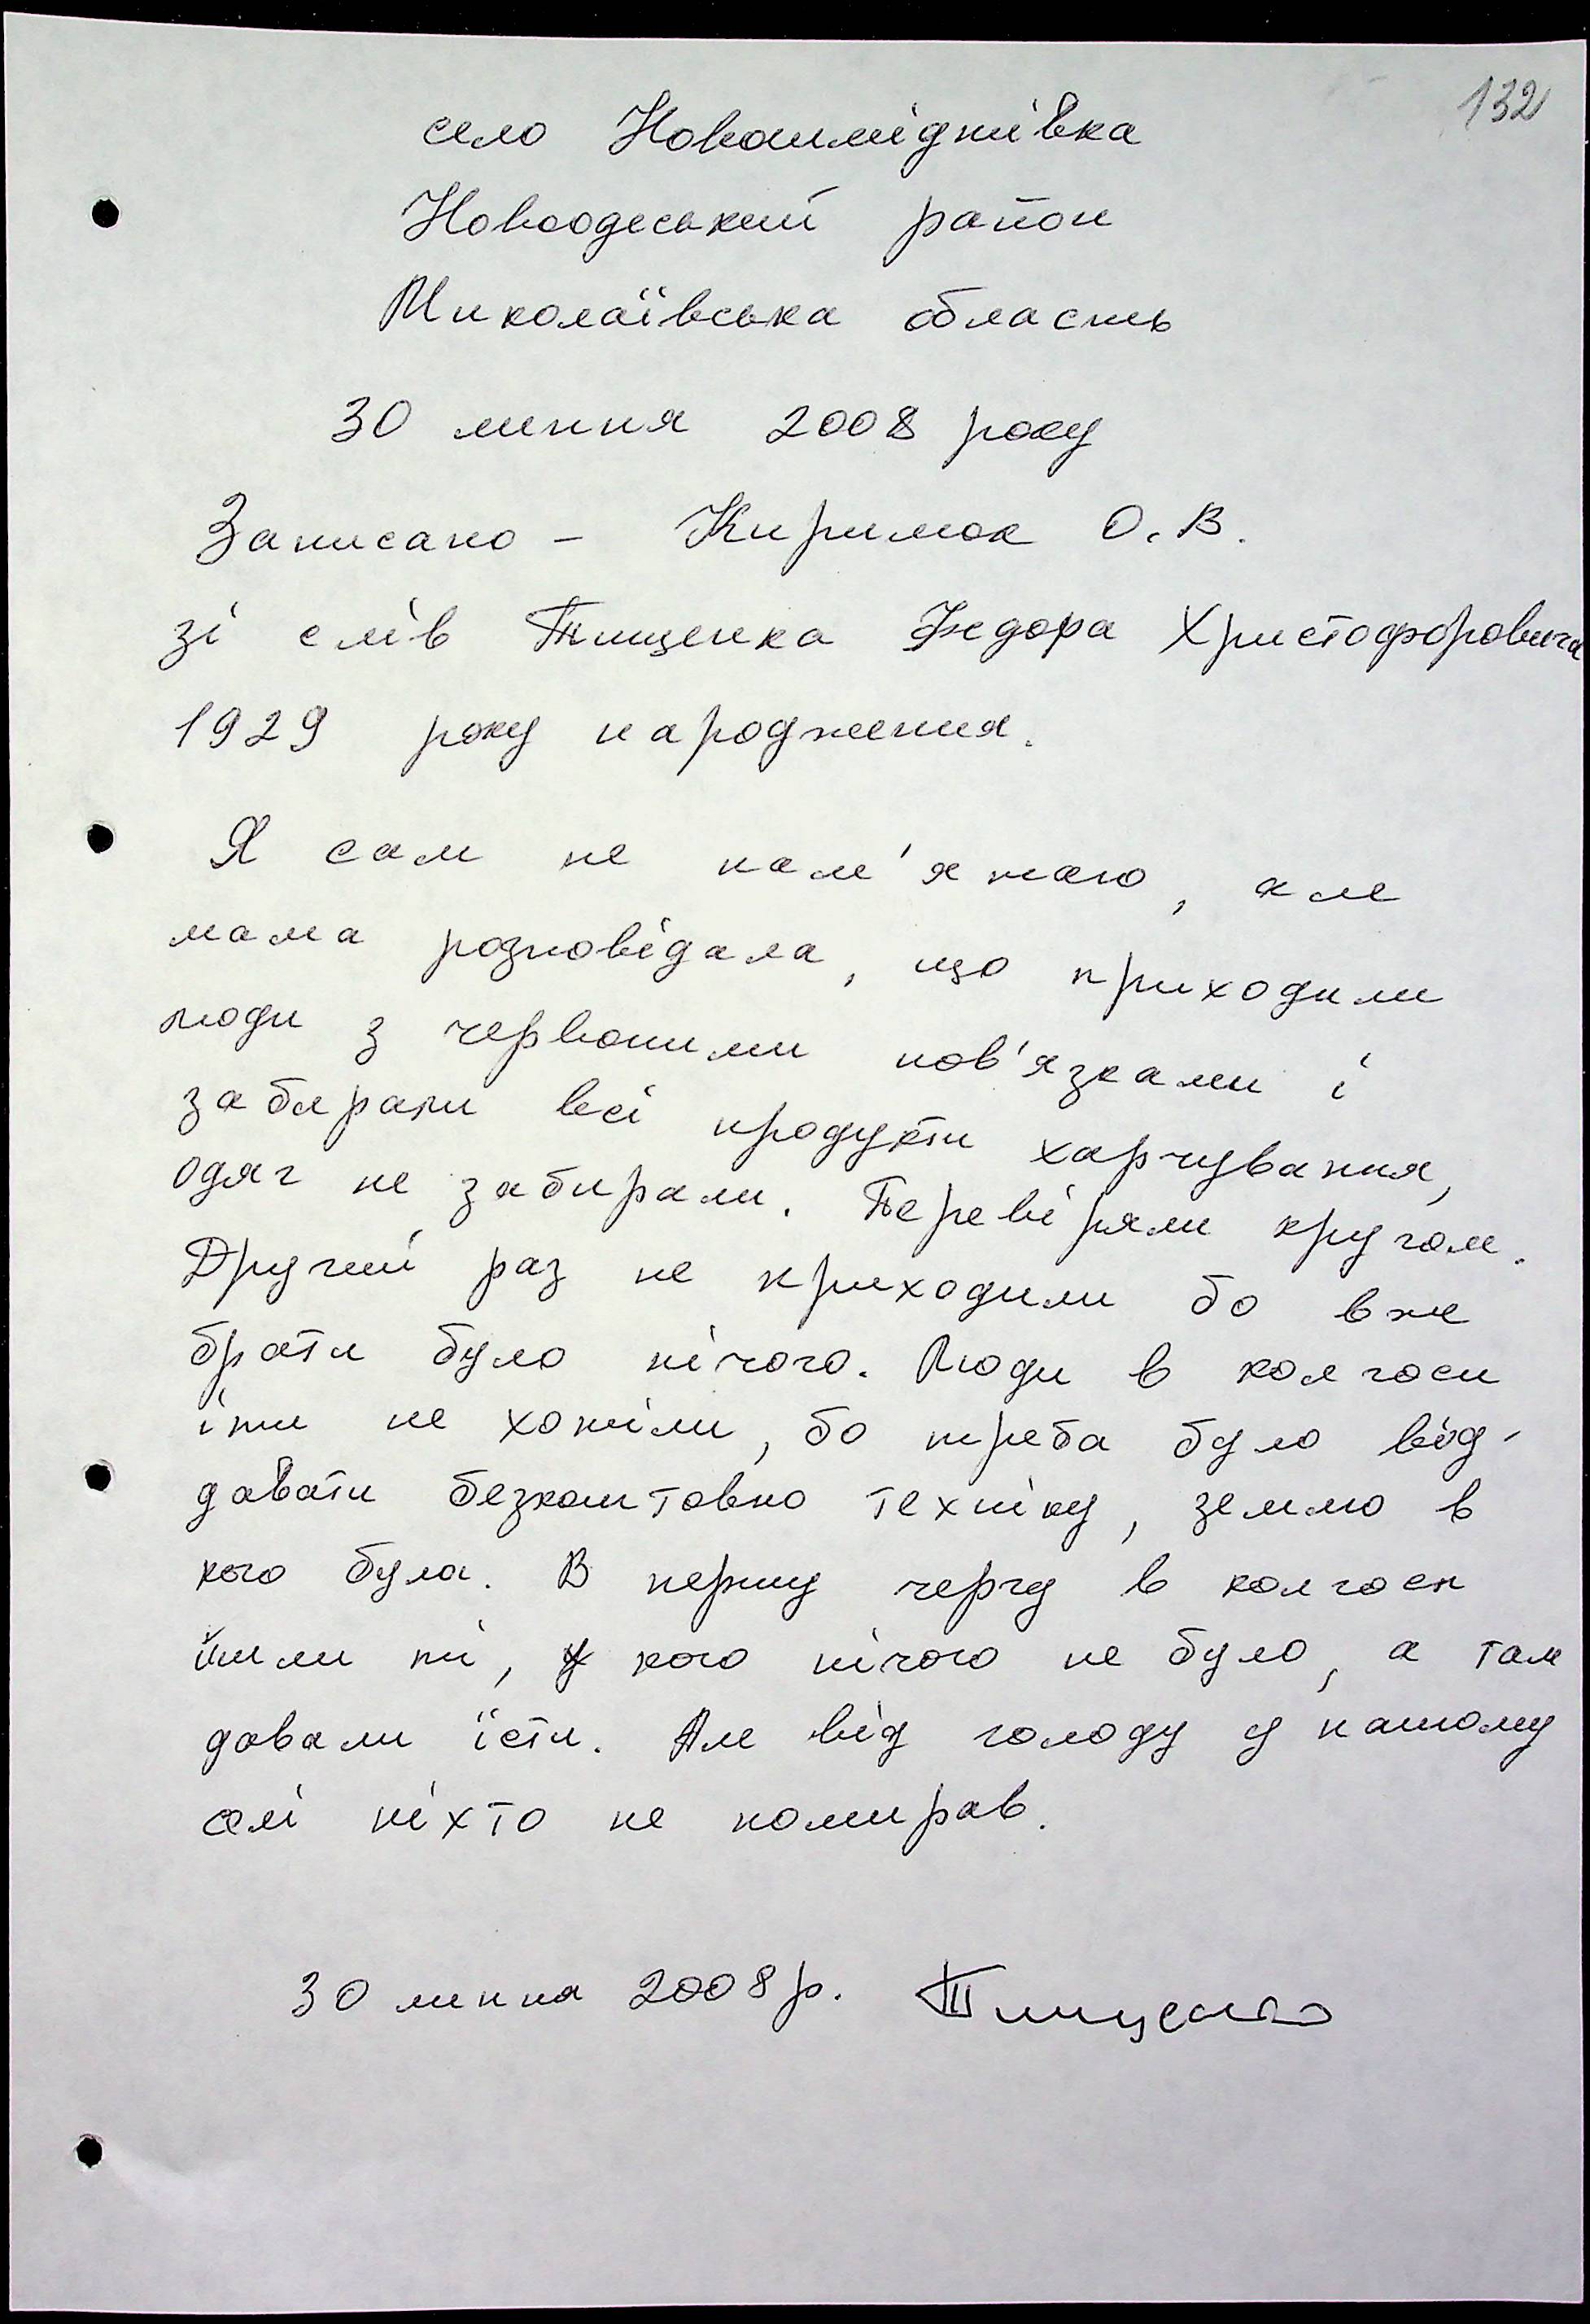 132
село Новошмідтівка
Новоодеський район
Миколаївська область
30 липня 2008 року
Записано - Киримок О.В.
зі слів Тищенка Федора Христофоровича
1929 року народження.
Я сам не пам'ятаю, але
мама розповідала, що приходили
люди з червоними пов'язками і
забирали всі продукти харчування,
одяг не забирали. Перевіряли кругом.
Другий раз не приходили бо вже
брати було нічого. Люди в колгосп
іти не хотіли, бо треба було від-
давати безкоштовно техніку, землю в
кого була. В першу чергу в колгосп
йшли ті, у кого нічого не було, а там
давали їсти. Але від голоду у нашому
селі ніхто не помирав.
30 липня 2008 р. Тищенко